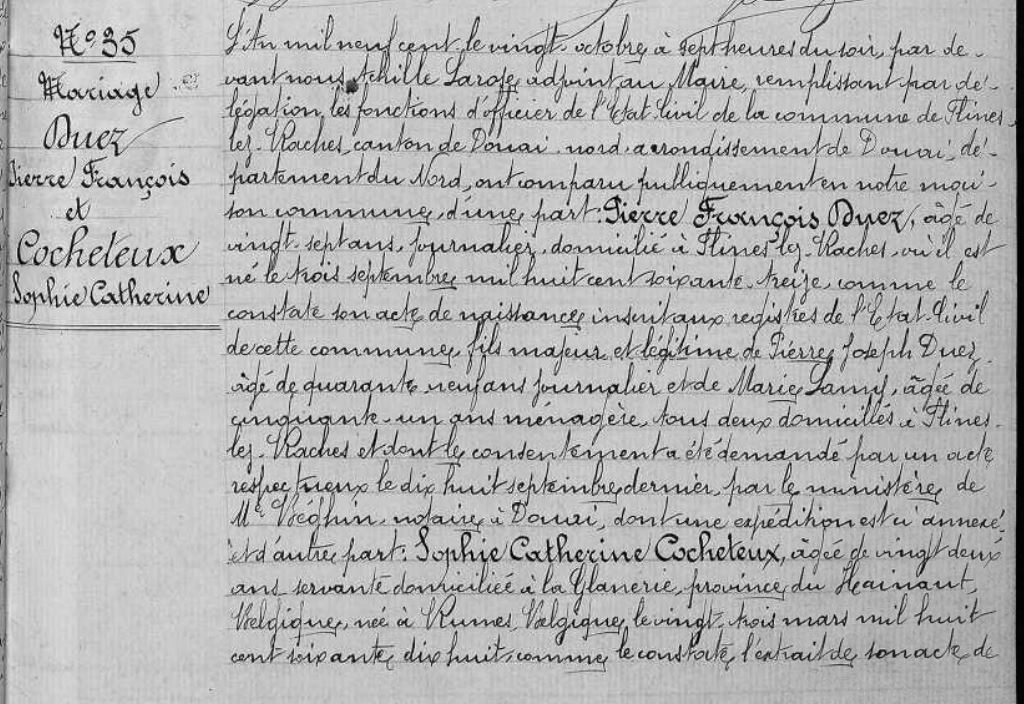 Nº 35
Mariage
Duez
Pierre François
et
Cocheteux
Sophie Catherine
L'An mil neuf cent, le vingt octobre, à sept heures du soir, par de-
vant nous Achille Laroze, adjoint au Maire, remplissant par dé-
légation les fonctions d'officier de l'Etat-Civil de la commune de Flines
lez-Raches, canton de Douai-nord, arrondissement de Douai, dé-
partement du Nord, ont comparu publiquement en notre mai-
son commune, d'une part: Pierre François Duez, âgé de
vingt-sept ans, journalier, domicilié à Flines-lez-Raches, où il est
né le trois septembre mil huit cent soixante-treize, comme le
constate son acte de naissance inscrit aux registres de l'Etat-Civil
de cette commune, fils majeur et légitime de Pierre Joseph Duez,
âgé de quarante-neuf ans journalier et de Marie Lamy, âgée de
cinquante-un ans ménagère, tous deux domiciliés à Flines-
lez-Raches et dont le consentement a été demandé par un acte
respectueux le dix huit septembre dernier, par le ministère de
Me notaire à Douai, dont une expédition est ci annexée
et d'autre part: Sophie Catherine Cocheteux, âgée de vingt deux
ans servante domiciliée à la Glanerie, province du Hainaut,
Belgique, née à Rumes, Belgique, le vingt-trois mars mil huit
cent soixante dix huit, comme le constate l'extrait de son acte de